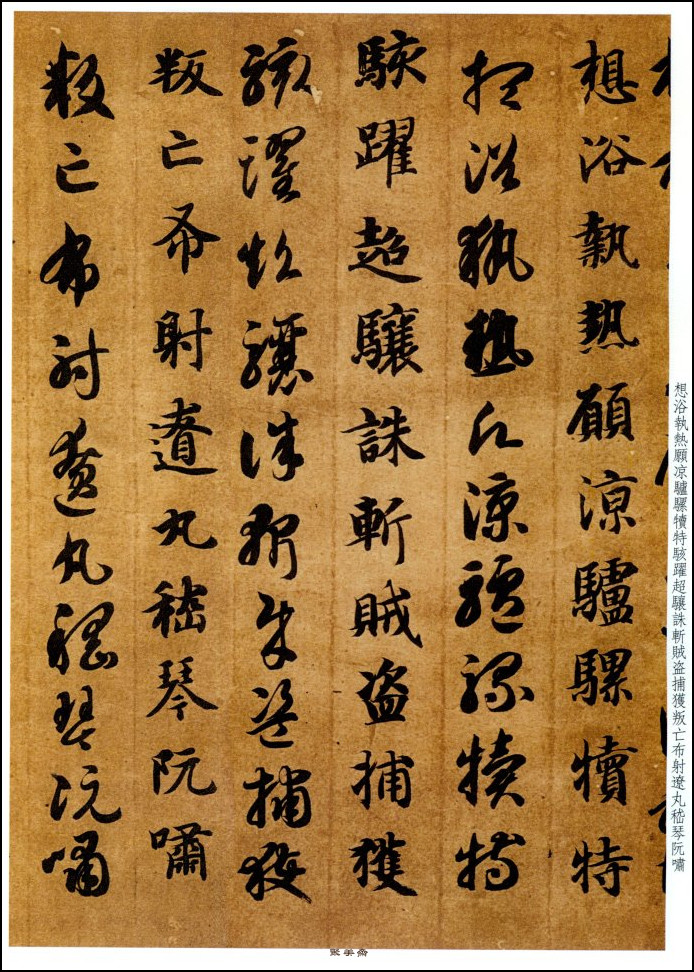 想浴執熱願涼驢騾犢特
想浴執熱願涼驢騾犢特
駭躍超驤誅斬賊盗捕獲
駭躍超驤誅斬賊盗捕獲
叛亡布射遼丸嵇琴阮嘯
叛亡布射遼丸嵇琴阮嘯
想浴執熱願凉驢騾犢特駭躍超驤誅斬賊盗捕獲叛亡布射遼丸嵇琴阮嘯